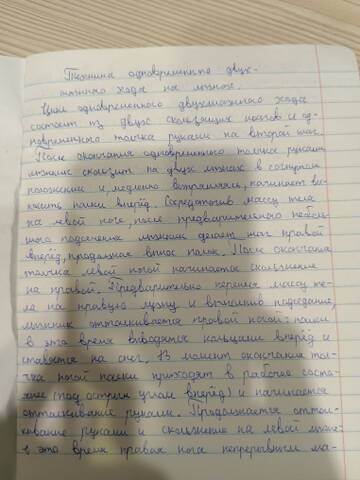 Техника одновременного двух-
шажного хода на лыжах.
Цикл одновременного двухшажного хода
состоит из двух скользящих шагов и од-
новременного толчка руками на второй шаг.
После окончания одновременного толчка руками
лыжник скользит на двух лыжах в согнутом
положении и, медленно выпрямляясь, начинает вы-
носить палки вперёд. Сосредоточив массу тела
на левой ноге, после предварительного неболь-
шого подседания лыжник делает шаг правой
вперёд, продолжая вынос палок. После окончания
толчка левой ногой начинается скольжение
на правой. Предварительно перенеся массу те-
ла на правую лыжу и выполнив подседание,
лыжник отталкивается правой ногой: палки
в это время выводятся кольцами вперёд и
ставятся на снег. В момент окончания тол-
чка ногой палки приходят в рабочее состо-
яние (под острым углом вперёд) и начинается
отталкивание руками. Продолжается оттал-
кивание руками и скольжение на левой лыже
в это время правая нога непрерывным ма-